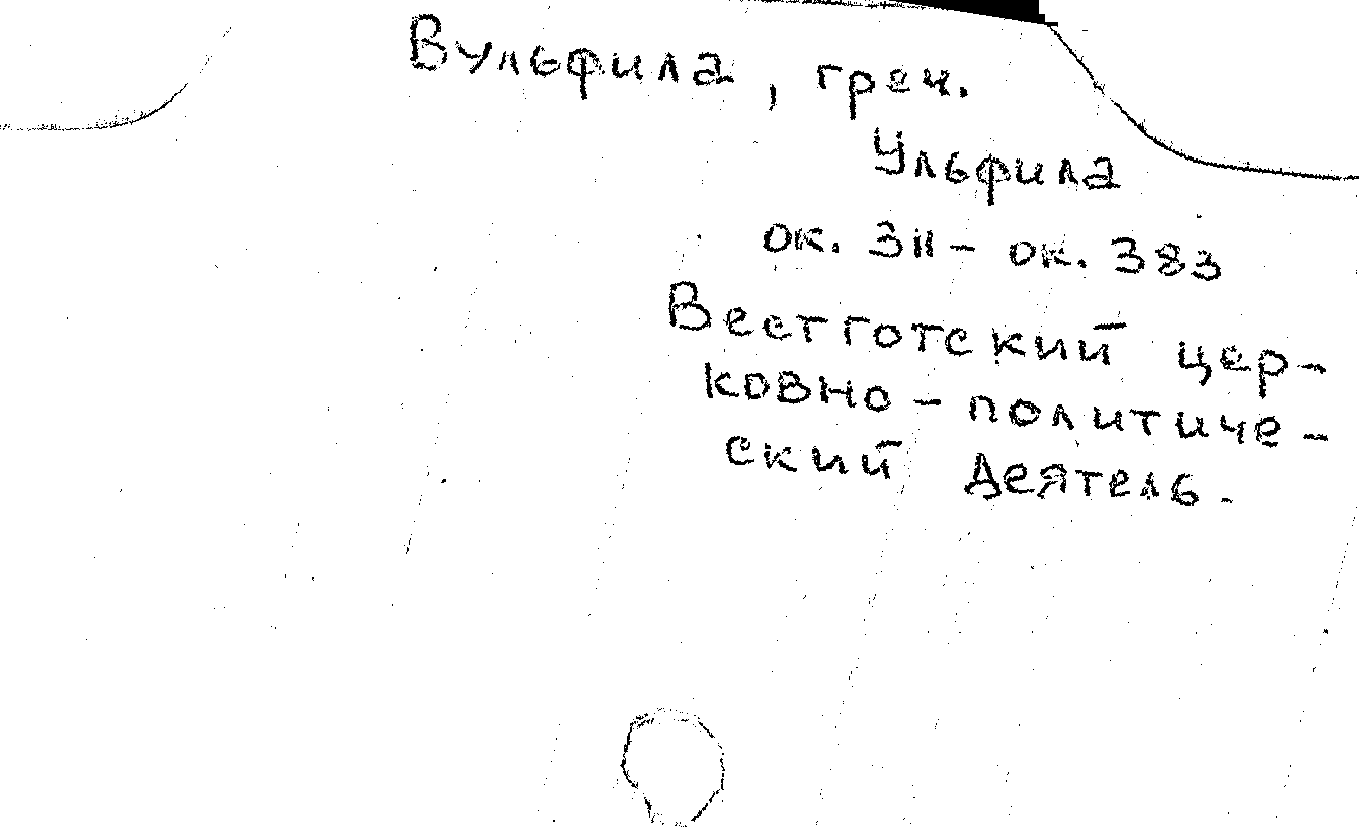 Вульфила, греч.
Ульфила
ок. 311 - ок. 383
Вестготский цер-
ковно-политиче-
ский деятель.